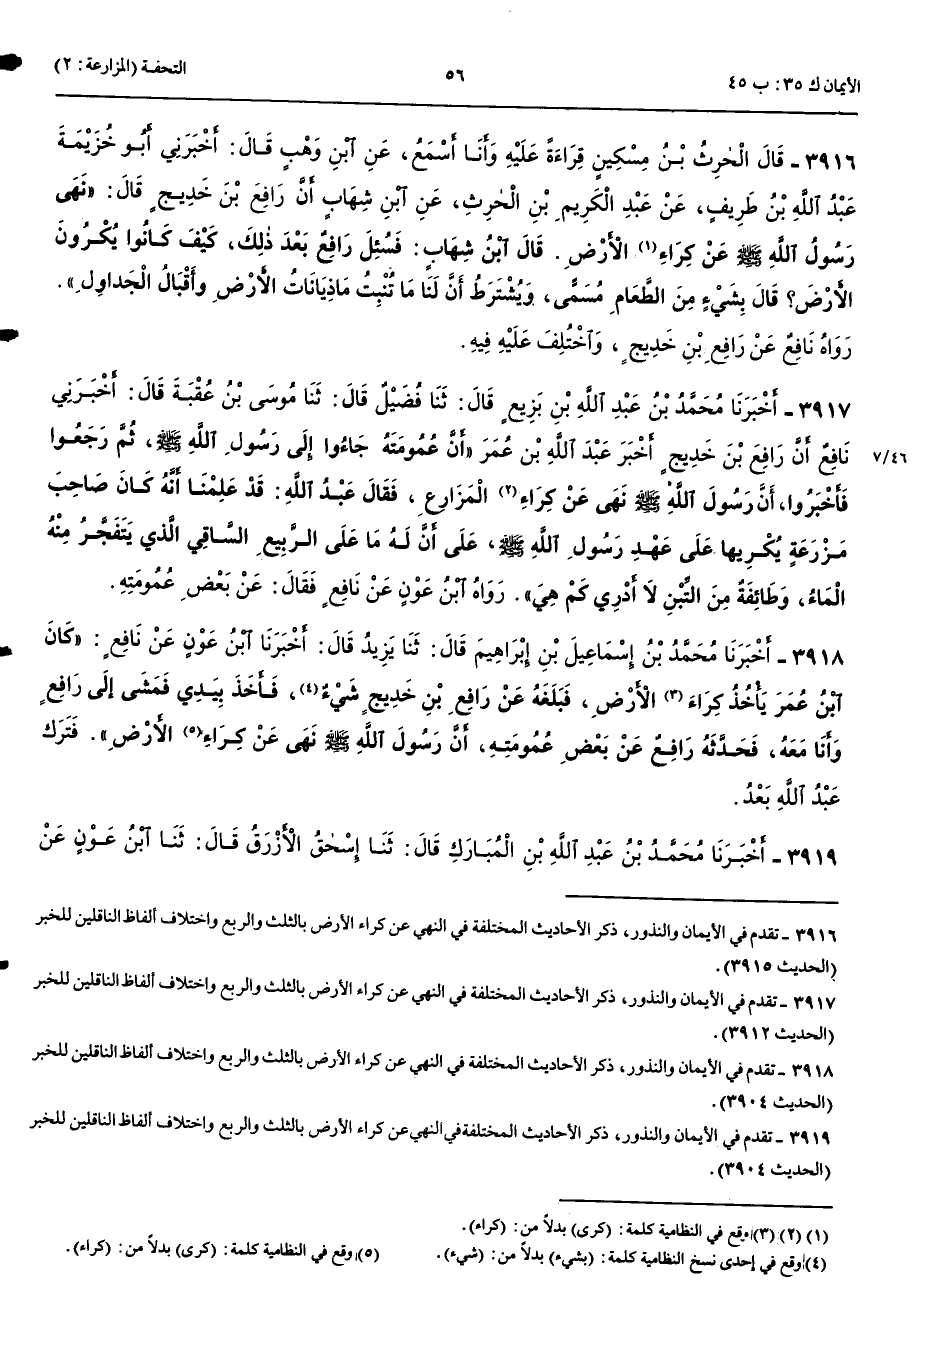 الأيمان ك ٣٥: ب ٤٥
٥٦
التحفة (المزارعة: ٢)
٣٩١٦ - قَالَ الْحٰرِثُ بْنُ مِسْكِينٍ قِرَاءَةً عَلَيْهِ وَأَنَا أَسْمَعُ، عَنِ ٱبْنِ وَهْبٍ قَالَ: أَخْبَرَنِي أَبُو خُزَيْمَةَ
عَبْدُ ٱللَّهِ بْنُ طَرِيفٍ، عَنْ عَبْدِ الْكَرِيمِ بْنِ الْحٰرِثِ، عَنِ ٱبْنِ شِهَابٍ أَنَّ رَافِعَ بْنَ خَدِيجٍ قَالَ: «نَهَى
رَسُولُ ٱللَّهِ ﷺ عَنْ كِرَاءِ(١) الْأَرْضِ. قَالَ ٱبْنُ شِهَابٍ: فَسُئِلَ رَافِعٌ بَعْدَ ذٰلِكَ، كَيْفَ كَانُوا يُكْرُونَ
الْأَرْضَ؟ قَالَ بِشَيْءٍ مِنَ الطَّعَامِ مُسَمًّى، وَيُشْتَرَطُ أَنَّ لَنَا مَا تُنْبِتُ مَاذِيَانَاتُ الْأَرْضِ وَأَقْبَالُ الْجَدَاوِلِ».
رَوَاهُ نَافِعٌ عَنْ رَافِعِ بْنِ خَدِيجٍ، وَٱخْتُلِفَ عَلَيْهِ فِيهِ.
٣٩١٧ - أَخْبَرَنَا مُحَمَّدُ بْنُ عَبْدِ ٱللَّهِ بْنِ بَزِيعٍ قَالَ: ثَنَا فُضَيْلٌ قَالَ: ثَنَا مُوسَى بْنُ عُقْبَةَ قَالَ: أَخْبَرَنِي
نَافِعٌ أَنَّ رَافِعَ بْنَ خَدِيجٍ أَخْبَرَ عَبْدَ ٱللَّهِ بْنَ عُمَرَ «أَنَّ عُمُومَتَهُ جَاءُوا إِلَى رَسُولِ ٱللَّهِ ﷺ، ثُمَّ رَجَعُوا
٧/٤٦
فَأَخْبَرُوا، أَنَّ رَسُولَ ٱللَّهِ ﷺ نَهَى عَنْ كِرَاءِ(٢) الْمَزَارِعِ، فَقَالَ عَبْدُ ٱللَّهِ: قَدْ عَلِمْنَا أَنَّهُ كَانَ صَاحِبَ
مَزْرَعَةٍ يُكْرِيهَا عَلَى عَهْدِ رَسُولِ ٱللَّهِ ﷺ، عَلَى أَنَّ لَهُ مَا عَلَى الرَّبِيعِ السَّاقِي الَّذِي يَتَفَجَّرُ مِنْهُ
الْمَاءُ، وَطَائِفَةٌ مِنَ التِّبْنِ لاَ أَدْرِي كَمْ هِيَ». رَوَاهُ ٱبْنُ عَوْنٍ عَنْ نَافِعٍ فَقَالَ: عَنْ بَعْضِ عُمُومَتِهِ.
٣٩١٨ - أَخْبَرَنَا مُحَمَّدُ بْنُ إِسْمَاعِيلَ بْنِ إِبْرَاهِيمَ قَالَ: ثَنَا يَزِيدُ قَالَ: أَخْبَرَنَا ٱبْنُ عَوْنٍ عَنْ نَافِعٍ: «كَانَ
ٱبْنُ عُمَرَ يَأْخُذُ كِرَاءَ(٣) الْأَرْضِ، فَبَلَغَهُ عَنْ رَافِعِ بْنِ خَدِيجٍ شَيْءٌ(٤)، فَأَخَذَ بِيَدِي فَمَشَى إِلَى رَافِعٍ
وَأَنَا مَعَهُ، فَحَدَّثَهُ رَافِعٌ عَنْ بَعْضِ عُمُومَتِهِ، أَنَّ رَسُولَ ٱللَّهِ ﷺ نَهَى عَنْ كِرَاءِ(٥) الْأَرْضِ». فَتَرَكَ
عَبْدُ ٱللَّهِ بَعْدُ.
٣٩١٩ - أَخْبَرَنَا مُحَمَّدُ بْنُ عَبْدِ ٱللَّهِ بْنِ الْمُبَارَكِ قَالَ: ثَنَا إِسْحٰقُ الْأَزْرَقُ قَالَ: ثَنَا ٱبْنُ عَوْنٍ عَنْ
٣٩١٦ - تقدم في الأيمان والنذور، ذكر الأحاديث المختلفة في النهي عن كراء الأرض بالثلث والربع واختلاف ألفاظ الناقلين للخبر
(الحديث ٣٩١٥).
٣٩١٧ - تقدم في الأيمان والنذور، ذكر الأحاديث المختلفة في النهي عن كراء الأرض بالثلث والربع واختلاف ألفاظ الناقلين للخبر
(الحديث ٣٩١٢).
٣٩١٨ - تقدم في الأيمان والنذور، ذكر الأحاديث المختلفة في النهي عن كراء الأرض بالثلث والربع واختلاف ألفاظ الناقلين للخبر
(الحديث ٣٩٠٤).
٣٩١٩ - تقدم في الأيمان والنذور، ذكر الأحاديث المختلفة في النهي عن كراء الأرض بالثلث والربع واختلاف ألفاظ الناقلين للخبر
(الحديث ٣٩٠٤).
(١) (٢) (٣) وقع في النظامية كلمة: (كرى) بدلاً من: (كراء).
(٤) وقع في إحدى نسخ النظامية كلمة: (بشيء) بدلاً من: (شيء). (٥) وقع في النظامية كلمة: (كرى) بدلاً من: (كراء).